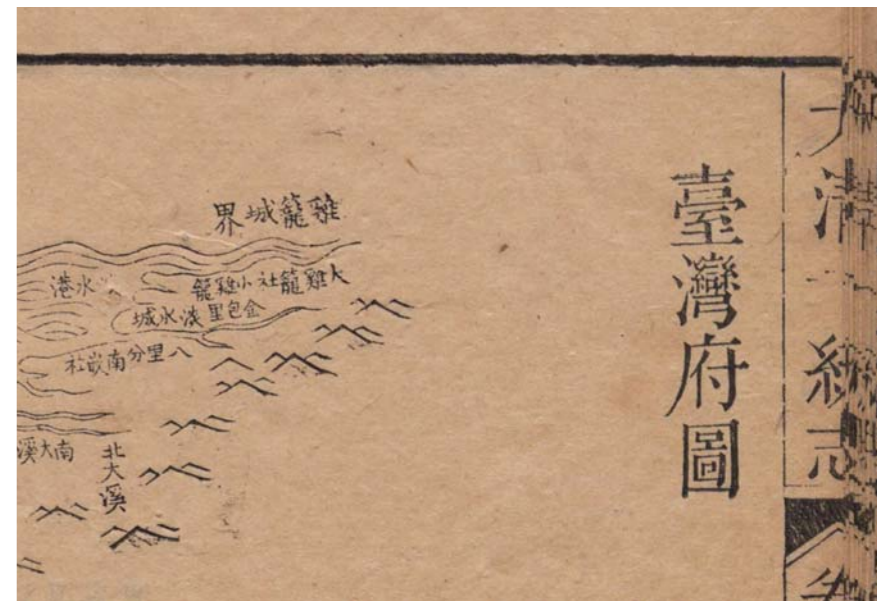 大清一統志
臺灣府圖
雞籠城界
大雞籠社小雞籠
金包里淡水城
水港
八里分南嵌社
北大溪
南大溪